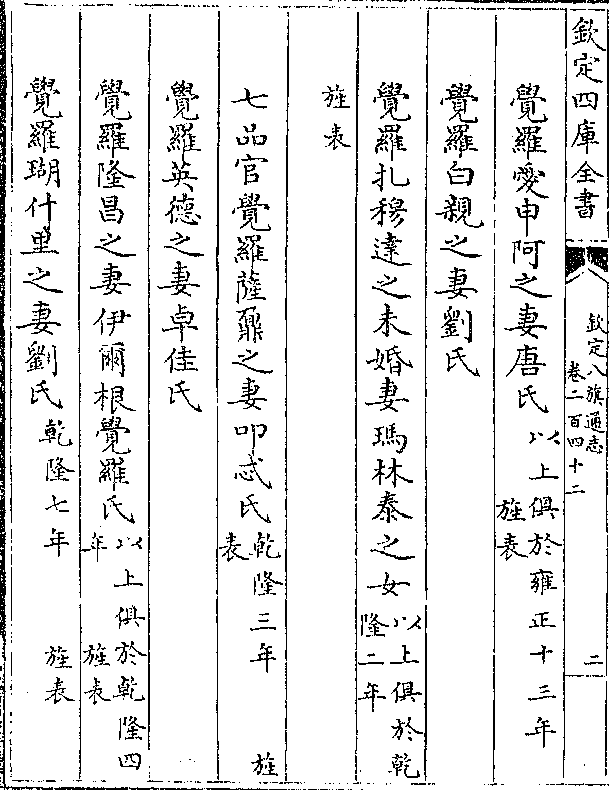 欽定四庫全書
欽定八旗通志
卷二百四十二
二
覺羅愛申阿之妻唐氏以上俱於雍正十三年
旌表
覺羅白親之妻劉氏
覺羅扎穆達之未婚妻瑪林泰之女以上俱於乾
隆二年
旌表
七品官覺羅薩鼐之妻叩忒氏乾隆三年 旌
表
覺羅英德之妻卓佳氏
覺羅隆昌之妻伊爾根覺羅氏以上俱於乾隆四
年 旌表
覺羅瑚什里之妻劉氏乾隆七年 旌表